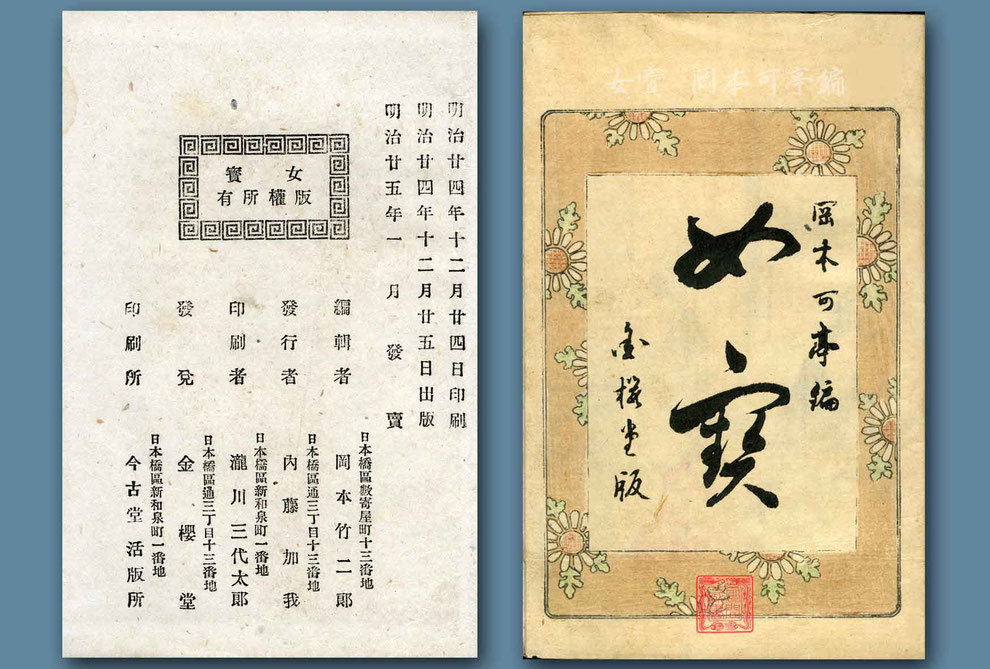 女寶 岡本可亭編
岡本可亭編
女寶
金櫻堂版
明治廿四年十二月廿四日印刷
明治廿四年十二月廿五日出版
明治廿五年一月發賣
女寶
版權所有
編輯者
日本橋區數寄屋町十三番地
岡本竹二郎
發行者
日本橋區通三丁目十三番地
內藤加我
印刷者
日本橋區新和泉町一番地
瀧川三代太郎
發兌
日本橋區通三丁目十三番地
金櫻堂
印刷所
日本橋區新和泉町一番地
今古堂活版所